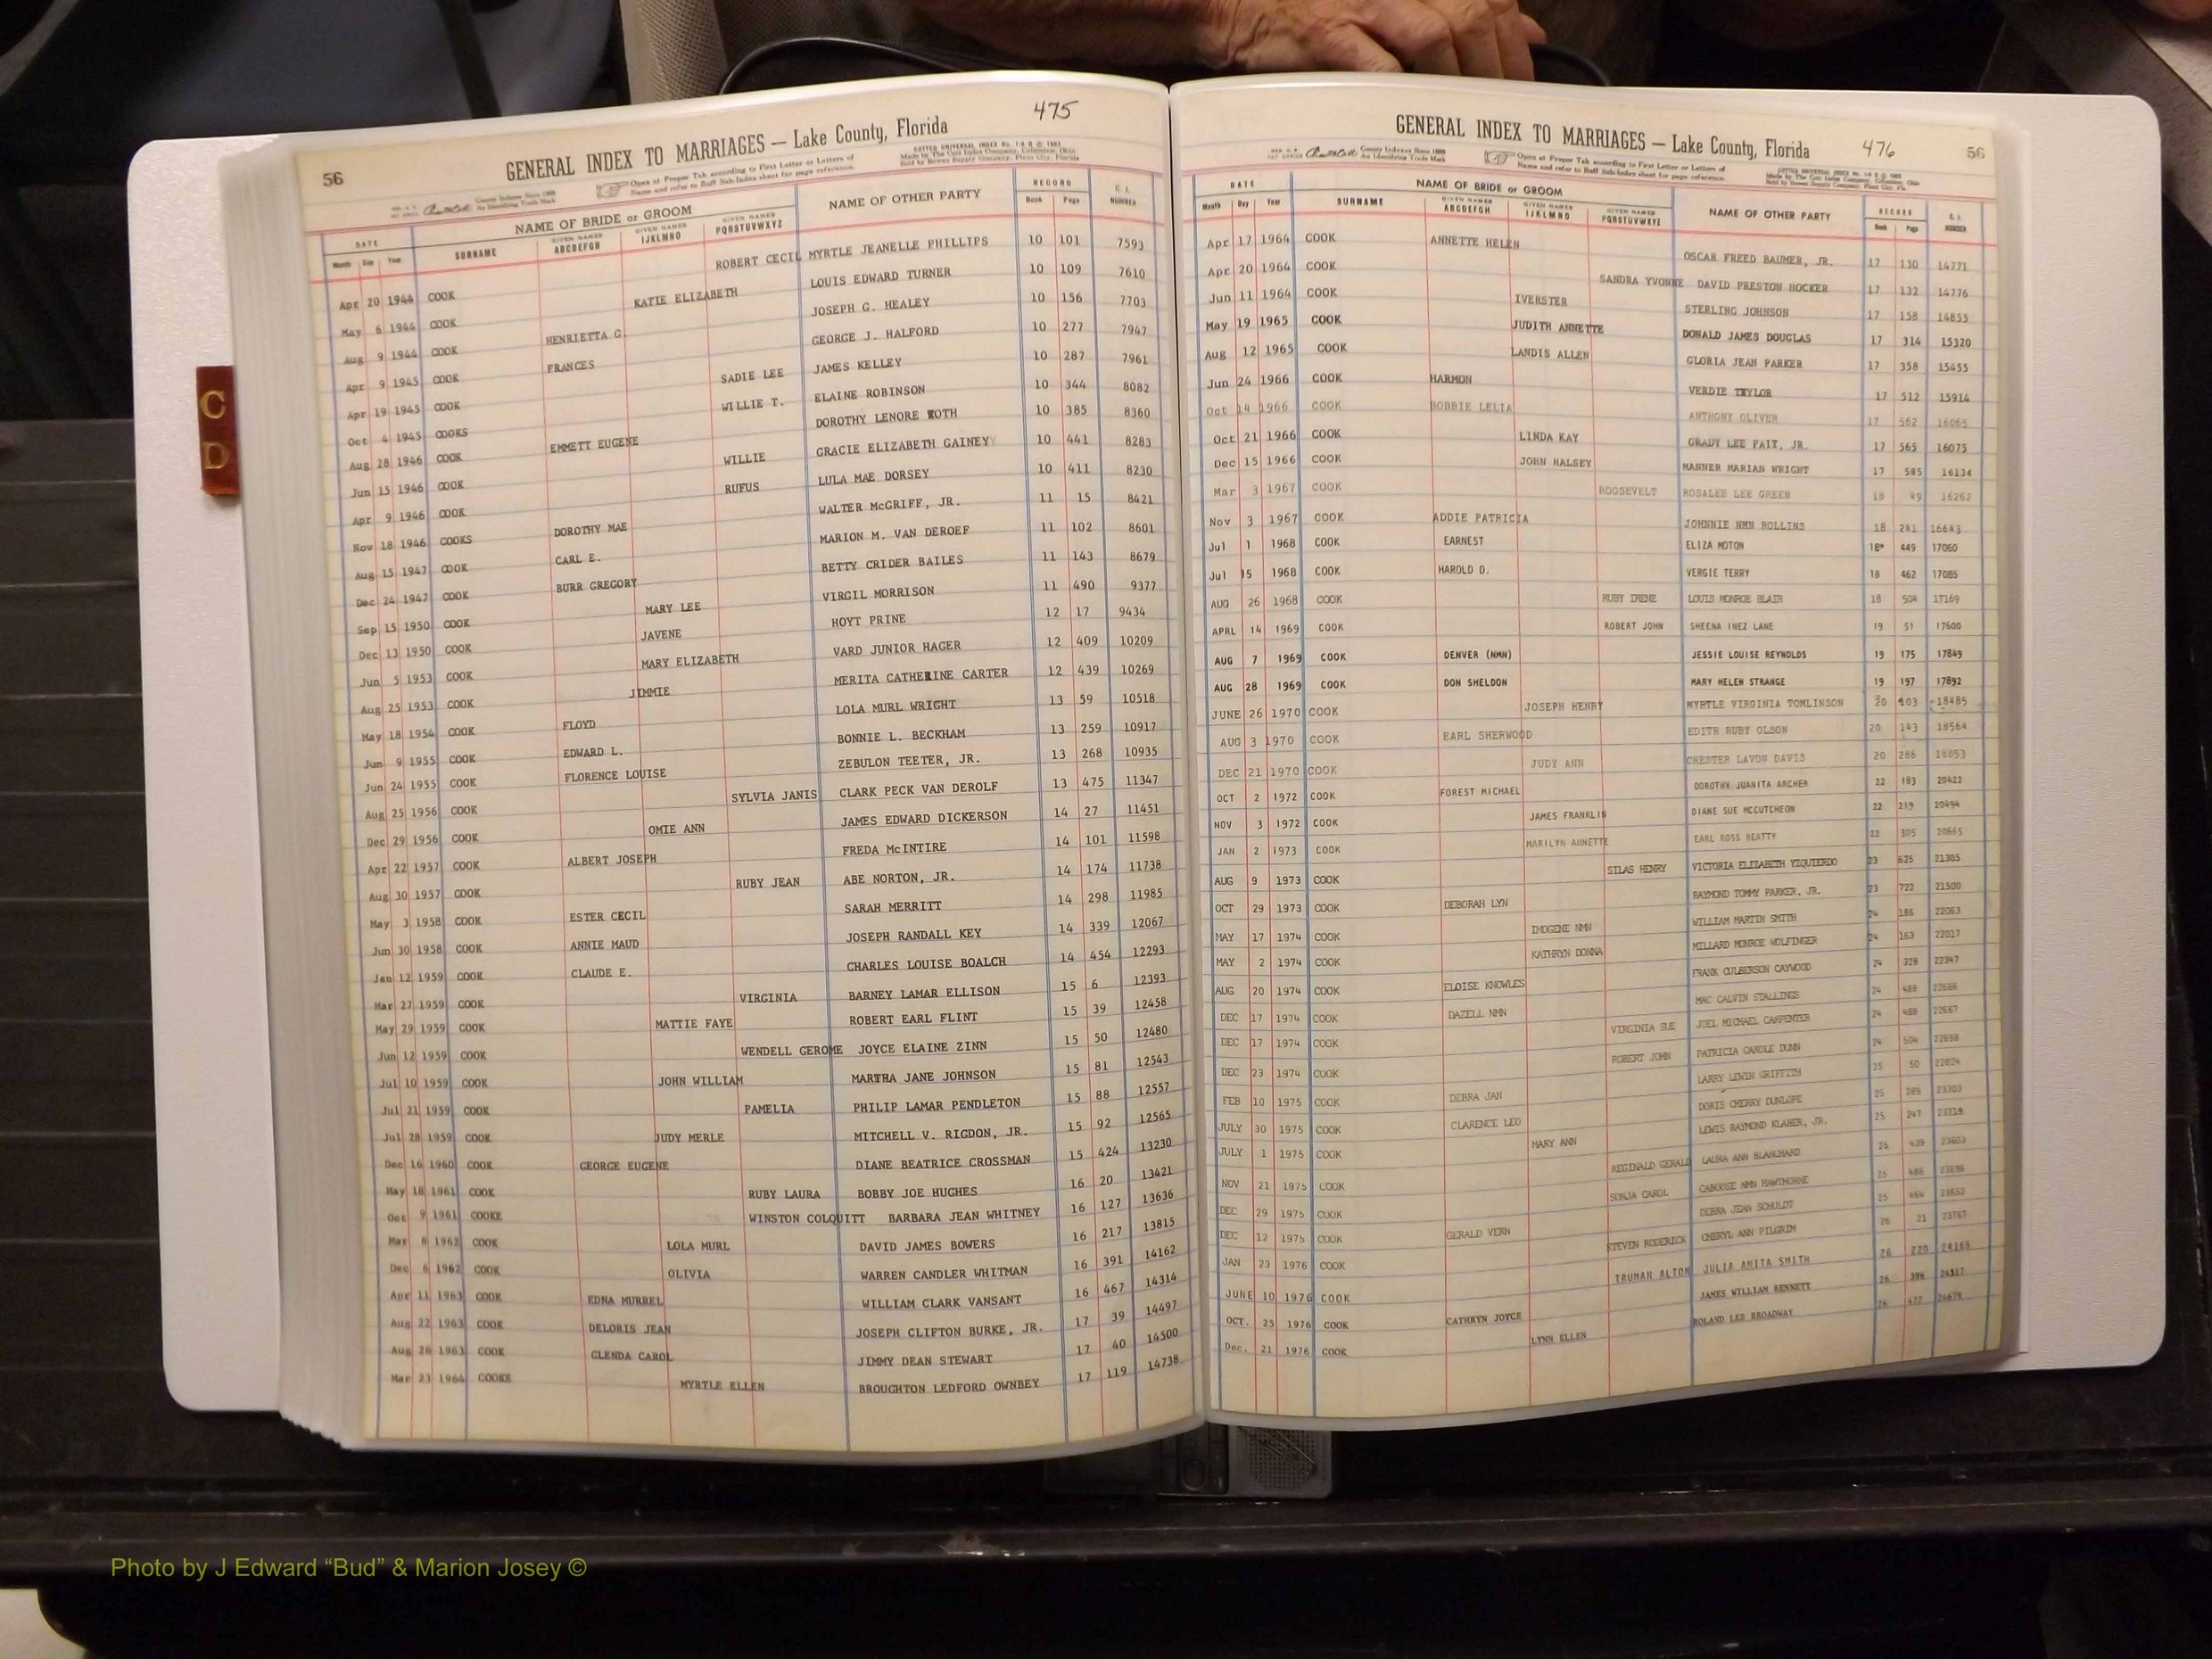 475
56
GENERAL INDEX TO MARRIAGES — Lake County, Florida
County Indexes Since 1888
An Identifying Trade Mark
Open at Proper Tab according to First Letter or Letters of
Name and refer to Buff Sub-Index sheet for page reference.
Made by The Cott Index Company, Columbus, Ohio
DATE NAME OF BRIDE or GROOM NAME OF OTHER PARTY RECORD G. I. NUMBER
Month Day Year SURNAME GIVEN NAMES ABCDEFGH GIVEN NAMES IJKLMNO GIVEN NAMES PQRSTUVWXYZ Book Page
Apr 20 1944 COOK ROBERT CECIL MYRTLE JEANELLE PHILLIPS 10 101 7593
May 6 1944 COOK KATIE ELIZABETH LOUIS EDWARD TURNER 10 109 7610
Aug 9 1944 COOK HENRIETTA G. JOSEPH G. HEALEY 10 156 7703
Apr 9 1945 COOK FRANCES GEORGE J. HALFORD 10 277 7947
Apr 19 1945 COOK SADIE LEE JAMES KELLEY 10 287 7961
Oct 4 1945 COOKS WILLIE T. ELAINE ROBINSON 10 344 8082
Aug 28 1946 COOK EMMETT EUGENE DOROTHY LENORE ROTH 10 385 8360
Jun 15 1946 COOK WILLIE GRACIE ELIZABETH GAINEY 10 441 8283
Apr 9 1946 COOK RUFUS LULA MAE DORSEY 10 411 8230
Nov 18 1946 COOKS DOROTHY MAE WALTER McGRIFF, JR. 11 15 8421
Aug 15 1947 COOK CARL E. MARION M. VAN DEROEF 11 102 8601
Dec 24 1947 COOK BURR GREGORY BETTY CRIDER BAILES 11 143 8679
Sep 15 1950 COOK MARY LEE VIRGIL MORRISON 11 490 9377
Dec 13 1950 COOK JAVENE HOYT PRINE 12 17 9434
Jun 5 1953 COOK MARY ELIZABETH VARD JUNIOR HAGER 12 409 10209
Aug 25 1953 COOK JIMMIE MERITA CATHERINE CARTER 12 439 10269
May 18 1954 COOK FLOYD LOLA MURL WRIGHT 13 59 10518
Jun 9 1955 COOK EDWARD L. BONNIE L. BECKHAM 13 259 10917
Jun 24 1955 COOK FLORENCE LOUISE ZEBULON TEETER, JR. 13 268 10935
Aug 25 1956 COOK SYLVIA JANIS CLARK PECK VAN DEROLF 13 475 11347
Dec 29 1956 COOK OMIE ANN JAMES EDWARD DICKERSON 14 27 11451
Apr 22 1957 COOK ALBERT JOSEPH FREDA McINTIRE 14 101 11598
Aug 30 1957 COOK RUBY JEAN ABE NORTON, JR. 14 174 11738
May 3 1958 COOK ESTER CECIL SARAH MERRITT 14 298 11985
Jun 30 1958 COOK ANNIE MAUD JOSEPH RANDALL KEY 14 339 12067
Jan 12 1959 COOK CLAUDE E. CHARLES LOUISE BOALCH 14 454 12293
Mar 27 1959 COOK VIRGINIA BARNEY LAMAR ELLISON 15 6 12393
May 29 1959 COOK MATTIE FAYE ROBERT EARL FLINT 15 39 12458
Jun 12 1959 COOK WENDELL GEROME JOYCE ELAINE ZINN 15 50 12480
Jul 10 1959 COOK JOHN WILLIAM MARTHA JANE JOHNSON 15 81 12543
Jul 21 1959 COOK PAMELIA PHILIP LAMAR PENDLETON 15 88 12557
Jul 28 1959 COOK JUDY MERLE MITCHELL V. RIGDON, JR. 15 92 12565
Dec 16 1960 COOK GEORGE EUGENE DIANE BEATRICE CROSSMAN 15 424 13230
May 18 1961 COOK RUBY LAURA BOBBY JOE HUGHES 16 20 13421
Oct 9 1961 COOKE WINSTON COLQUITT BARBARA JEAN WHITNEY 16 127 13636
Mar 8 1962 COOK LOLA MURL DAVID JAMES BOWERS 16 217 13815
Dec 6 1962 COOK OLIVIA WARREN CANDLER WHITMAN 16 391 14162
Apr 11 1963 COOK EDNA MURREL WILLIAM CLARK VANSANT 16 467 14314
Aug 22 1963 COOK DELORIS JEAN JOSEPH CLIFTON BURKE, JR. 17 39 14497
Aug 26 1963 COOK GLENDA CAROL JIMMY DEAN STEWART 17 40 14500
Mar 23 1964 COOKE MYRTLE ELLEN BROUGHTON LEDFORD OWNBEY 17 119 14738
GENERAL INDEX TO MARRIAGES — Lake County, Florida
476
56
County Indexes Since 1888
An Identifying Trade Mark
Open at Proper Tab according to First Letter or Letters of
Name and refer to Buff Sub-Index sheet for page reference.
DATE NAME OF BRIDE or GROOM NAME OF OTHER PARTY RECORD G. I. NUMBER
Month Day Year SURNAME GIVEN NAMES ABCDEFGH GIVEN NAMES IJKLMNO GIVEN NAMES PQRSTUVWXYZ Book Page
Apr 17 1964 COOK ANNETTE HELEN OSCAR FREED BAUMER, JR. 17 130 14771
Apr 20 1964 COOK SANDRA YVONNE DAVID PRESTON HOCKER 17 132 14776
Jun 11 1964 COOK IVERSTER STERLING JOHNSON 17 158 14855
May 19 1965 COOK JUDITH ANNETTE DONALD JAMES DOUGLAS 17 314 15320
Aug 12 1965 COOK LANDIS ALLEN GLORIA JEAN PARKER 17 358 15455
Jun 24 1966 COOK HARMON VERDIE TAYLOR 17 512 15914
Oct 14 1966 COOK BOBBIE LELIA ANTHONY OLIVER 17 562 16065
Oct 21 1966 COOK LINDA KAY GRADY LEE FAIT, JR. 17 565 16075
Dec 15 1966 COOK JOHN HALSEY MANNER MARIAN WRIGHT 17 585 16134
Mar 3 1967 COOK ROOSEVELT ROSALEE LEE GREEN 18 49 16262
Nov 3 1967 COOK ADDIE PATRICIA JOHNNIE NMN ROLLINS 18 241 16643
Jul 1 1968 COOK EARNEST ELIZA MOTON 18 449 17060
Jul 15 1968 COOK HAROLD D. VERGIE TERRY 18 462 17085
AUG 26 1968 COOK RUBY IRENE LOUIS MONROE BLAIR 18 504 17169
APRL 14 1969 COOK ROBERT JOHN SHEENA INEZ LANE 19 51 17600
AUG 7 1969 COOK DENVER (NMN) JESSIE LOUISE REYNOLDS 19 175 17849
AUG 28 1969 COOK DON SHELDON MARY HELEN STRANGE 19 197 17892
JUNE 26 1970 COOK JOSEPH HENRY MYRTLE VIRGINIA TOMLINSON 20 103 18485
AUG 3 1970 COOK EARL SHERWOOD EDITH RUBY OLSON 20 143 18564
DEC 21 1970 COOK JUDY ANN CHESTER LAVON DAVIS 20 286 18853
OCT 2 1972 COOK FOREST MICHAEL DOROTHY JUANITA ARCHER 22 183 20422
NOV 3 1972 COOK JAMES FRANKLIN DIANE SUE MCCUTCHEON 22 219 20494
JAN 2 1973 COOK MARILYN ANNETTE EARL ROSS BEATTY 22 305 20665
AUG 9 1973 COOK SILAS HENRY VICTORIA ELIZABETH YZQUIERDO 23 625 21305
OCT 29 1973 COOK DEBORAH LYN RAYMOND TOMMY PARKER, JR. 23 722 21500
MAY 17 1974 COOK IMOGENE NMN WILLIAM MARTIN SMITH 24 186 22063
MAY 2 1974 COOK KATHRYN DONNA MILLARD MONROE WOLFINGER 24 163 22017
AUG 20 1974 COOK ELOISE KNOWLES FRANK CULBERSON CAYWOOD 24 328 22347
DEC 17 1974 COOK DAZELL NMN MAC CALVIN STALLINGS 24 489 22666
DEC 17 1974 COOK VIRGINIA SUE JOEL MICHAEL CARPENTER 24 488 22667
DEC 23 1974 COOK ROBERT JOHN PATRICIA CAROLE DUNN 24 504 22698
FEB 10 1975 COOK DEBRA JAN LARRY LEWIN GRIFFITH 25 50 22824
JULY 30 1975 COOK CLARENCE LEO DORIS CHERRY DUNLOPE 25 289 23303
JULY 1 1975 COOK MARY ANN LEWIS RAYMOND KLABER, JR. 25 247 23218
NOV 21 1975 COOK REGINALD GERALD LAURA ANN BLANCHARD 25 439 23603
DEC 29 1975 COOK SONJA CAROL CABOOSE NMN HAWTHORNE 25 486 23696
DEC 12 1975 COOK GERALD VERN DEBRA JEAN SCHULDT 25 464 23652
JAN 23 1976 COOK STEVEN RODERICK CHERYL ANN PILGRIM 26 21 23767
JUNE 10 1976 COOK TRUMAN ALTON JULIA ANITA SMITH 26 220 24165
OCT. 25 1976 COOK CATHRYN JOYCE JAMES WILLIAM BENNETT 26 396 24517
Dec. 21 1976 COOK LYNN ELLEN ROLAND LEE BROADWAY 26 477 24679
C
D
Photo by J Edward “Bud” & Marion Josey ©